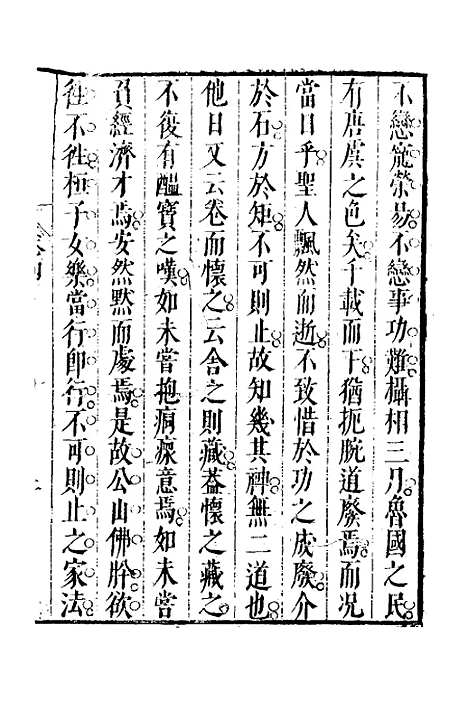 不戀寵榮易不戀事功難攝相三月魯國之民
有唐虞之色矣千載而下猶扼腕道廢焉而況
當日乎聖人飄然而逝不致惜於功之成廢介
於石方於矩不可則止故知幾其神無二道也
他日又云卷而懷之云舍之則藏葢懷之藏之
不復有醞寶之嘆如未嘗抱痌瘝意焉如未嘗
負經濟才焉安然默而處焉是故公山佛肸欲
徃不徃桓子女樂當行卽行不可則止之家法